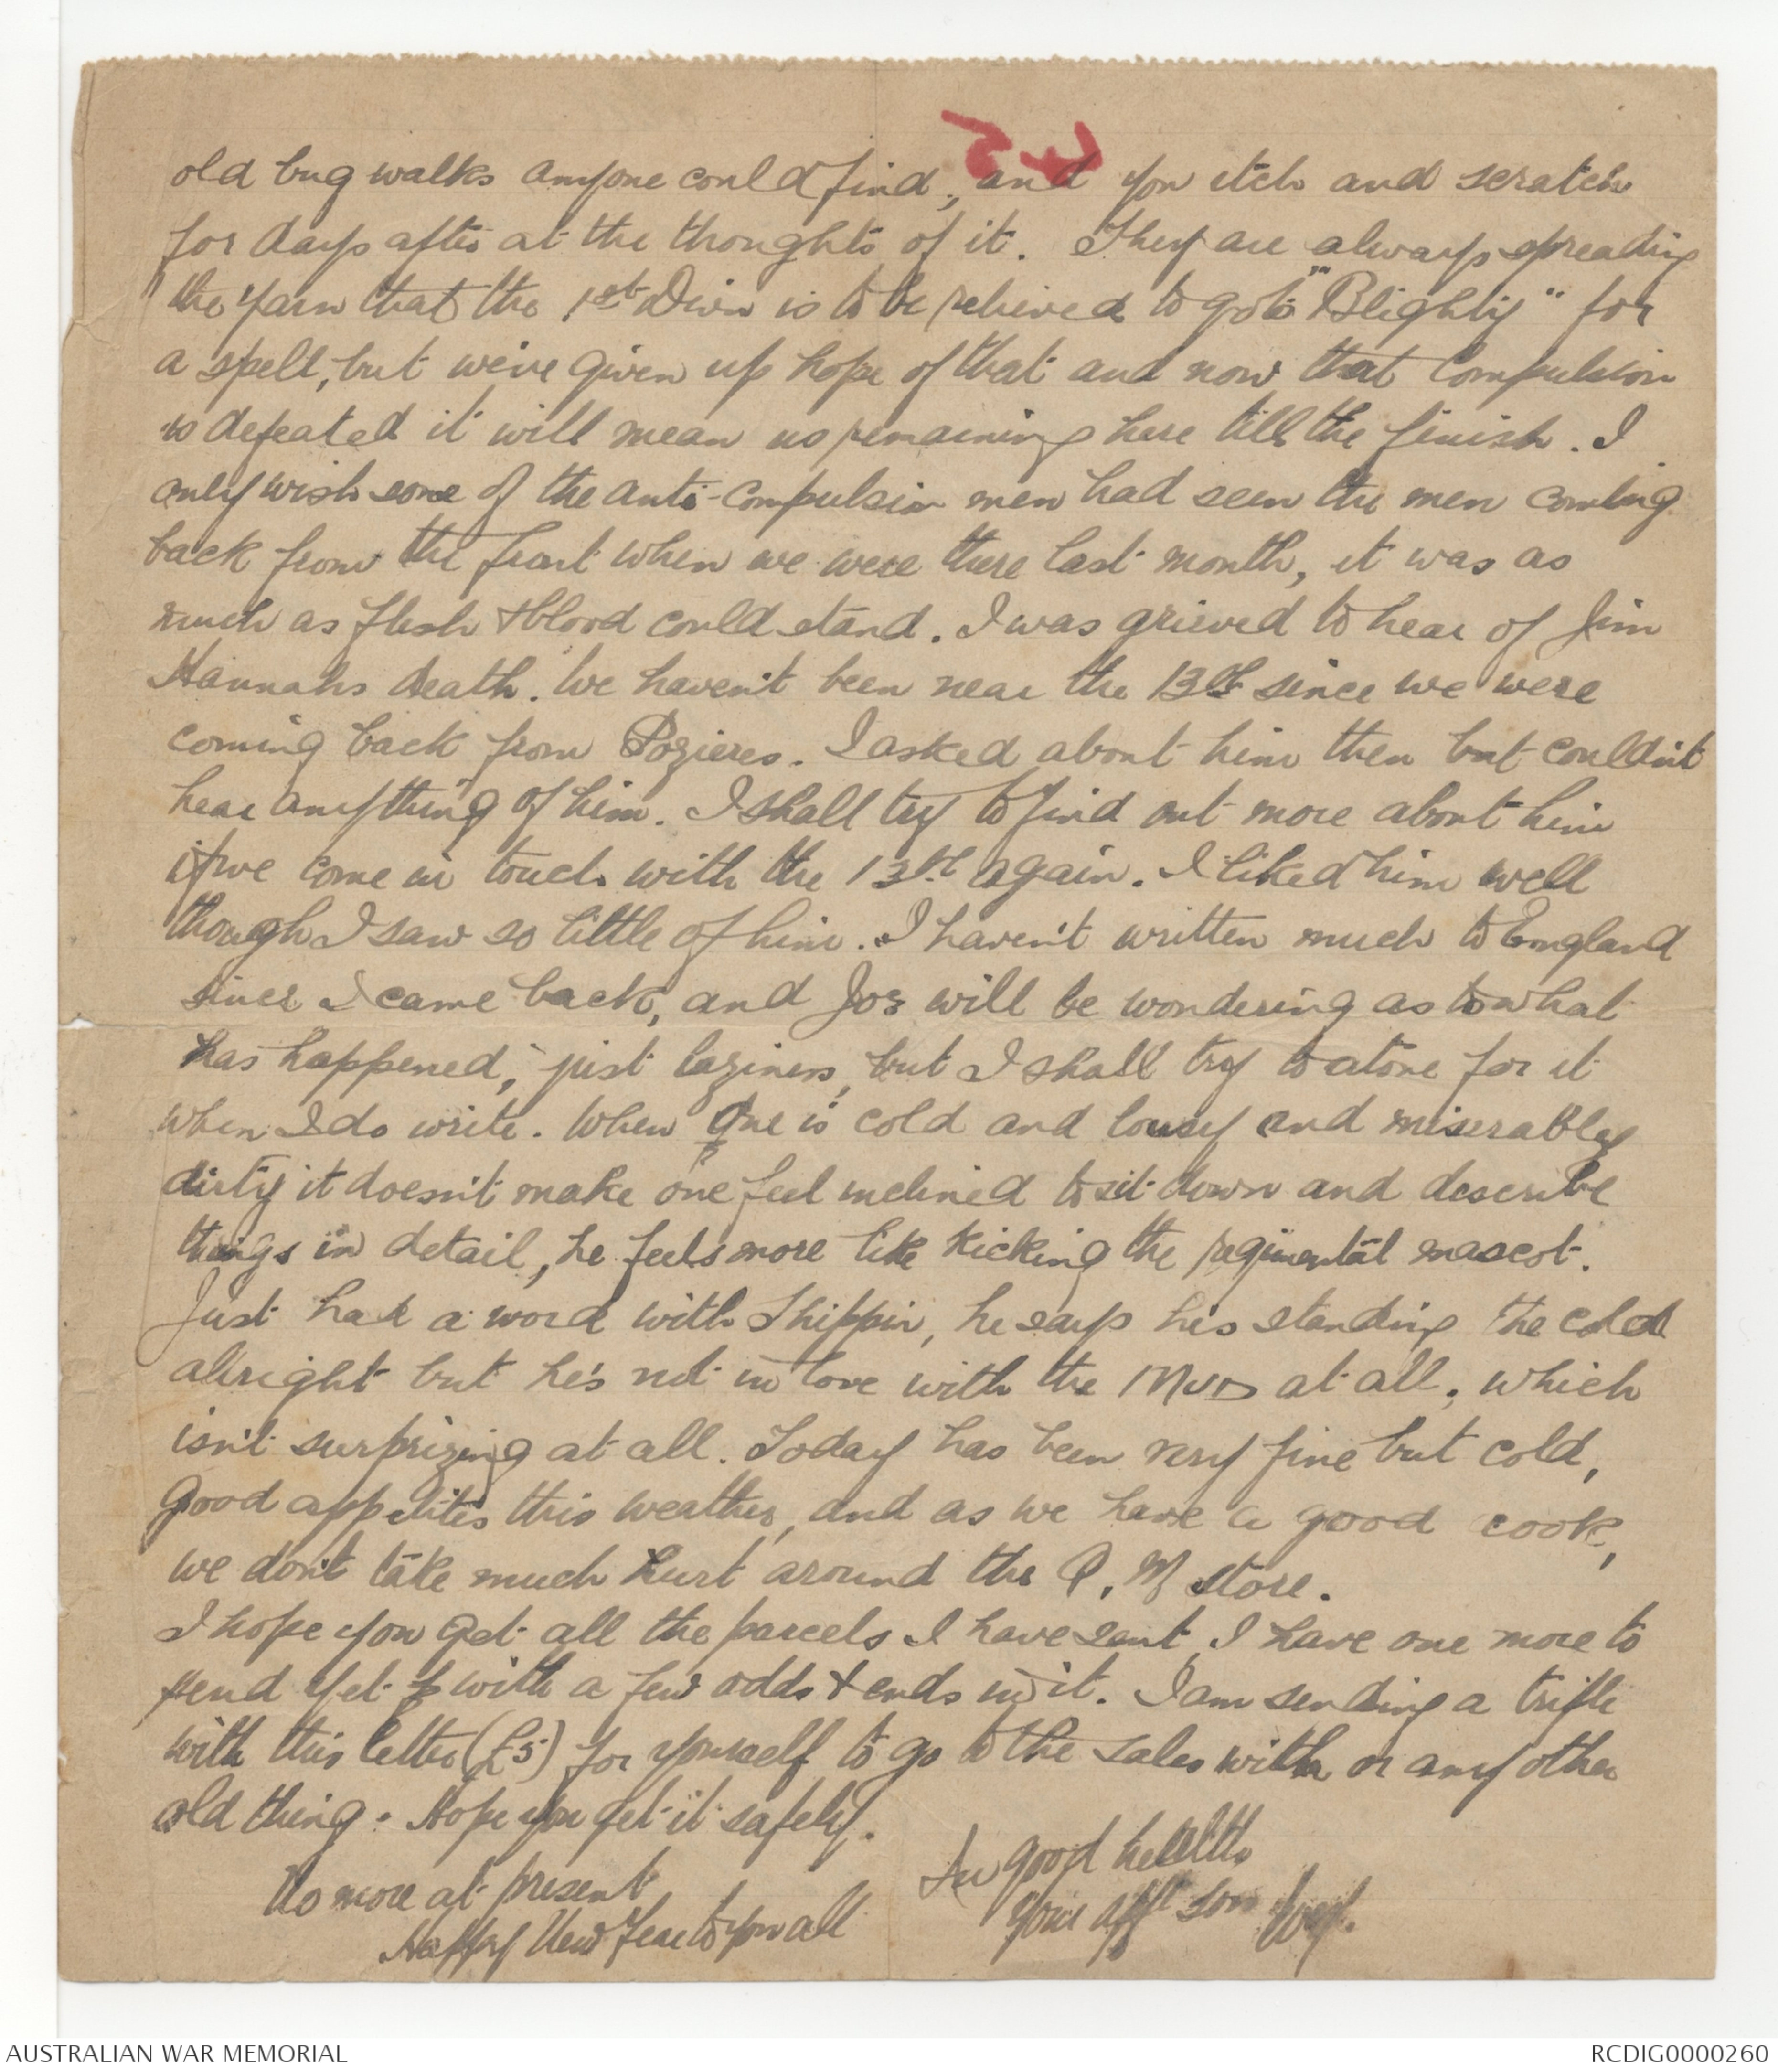 old bug walks anyone could find, and you itch and scratch
for days after at the thoughts of it. They are always spreading
the yarn that the 1st Divn is to be relieved to go to "Blighty" for
a spell, but we've given up hope of that and now that Compulsion
is defeated it will mean us remaining here till the finish. I
only wish some of the anti-compulsion men had seen the men coming
back from the front when we were there last month, it was as
much as flesh & blood could stand. I was grieved to hear of Jim
Hannahs death. We haven't been near the 13th since we were
coming back from Pozieres. I asked about him then but couldn't
hear anything of him. I shall try to find out more about him
if we come in touch with the 13th again. I liked him well
though I saw so little of him. I haven't written much to England
since I came back, and Jos will be wondering as to what
has happened, just laziness, but I shall try to atone for it
when I do write. When one is cold and lousy and miserably
dirty it doesn't make one feel inclined to sit down and describe
things in detail, he feels more like kicking the regimental mascot.
Just had a word with Shippin, he says his standing the cold
alright but he's not in love with the MUD at all, which
isn't surprizing at all. Today has been very fine but cold,
Good appetites this weather, and as we have a good cook,
we don't take much hurt around the Q.M store.
I hope you get all the parcels I have sent, I have one more to
send yet with a few odds & ends in it. I am sending a trifle
with this letter (£5) for yourself to go to the sales with or any other
old thing. Hope you get it safely.
In good health
No more at present
Your afft son
Happy New Year to you all
AUSTRALIAN WAR MEMORIAL
RCDIG0000260